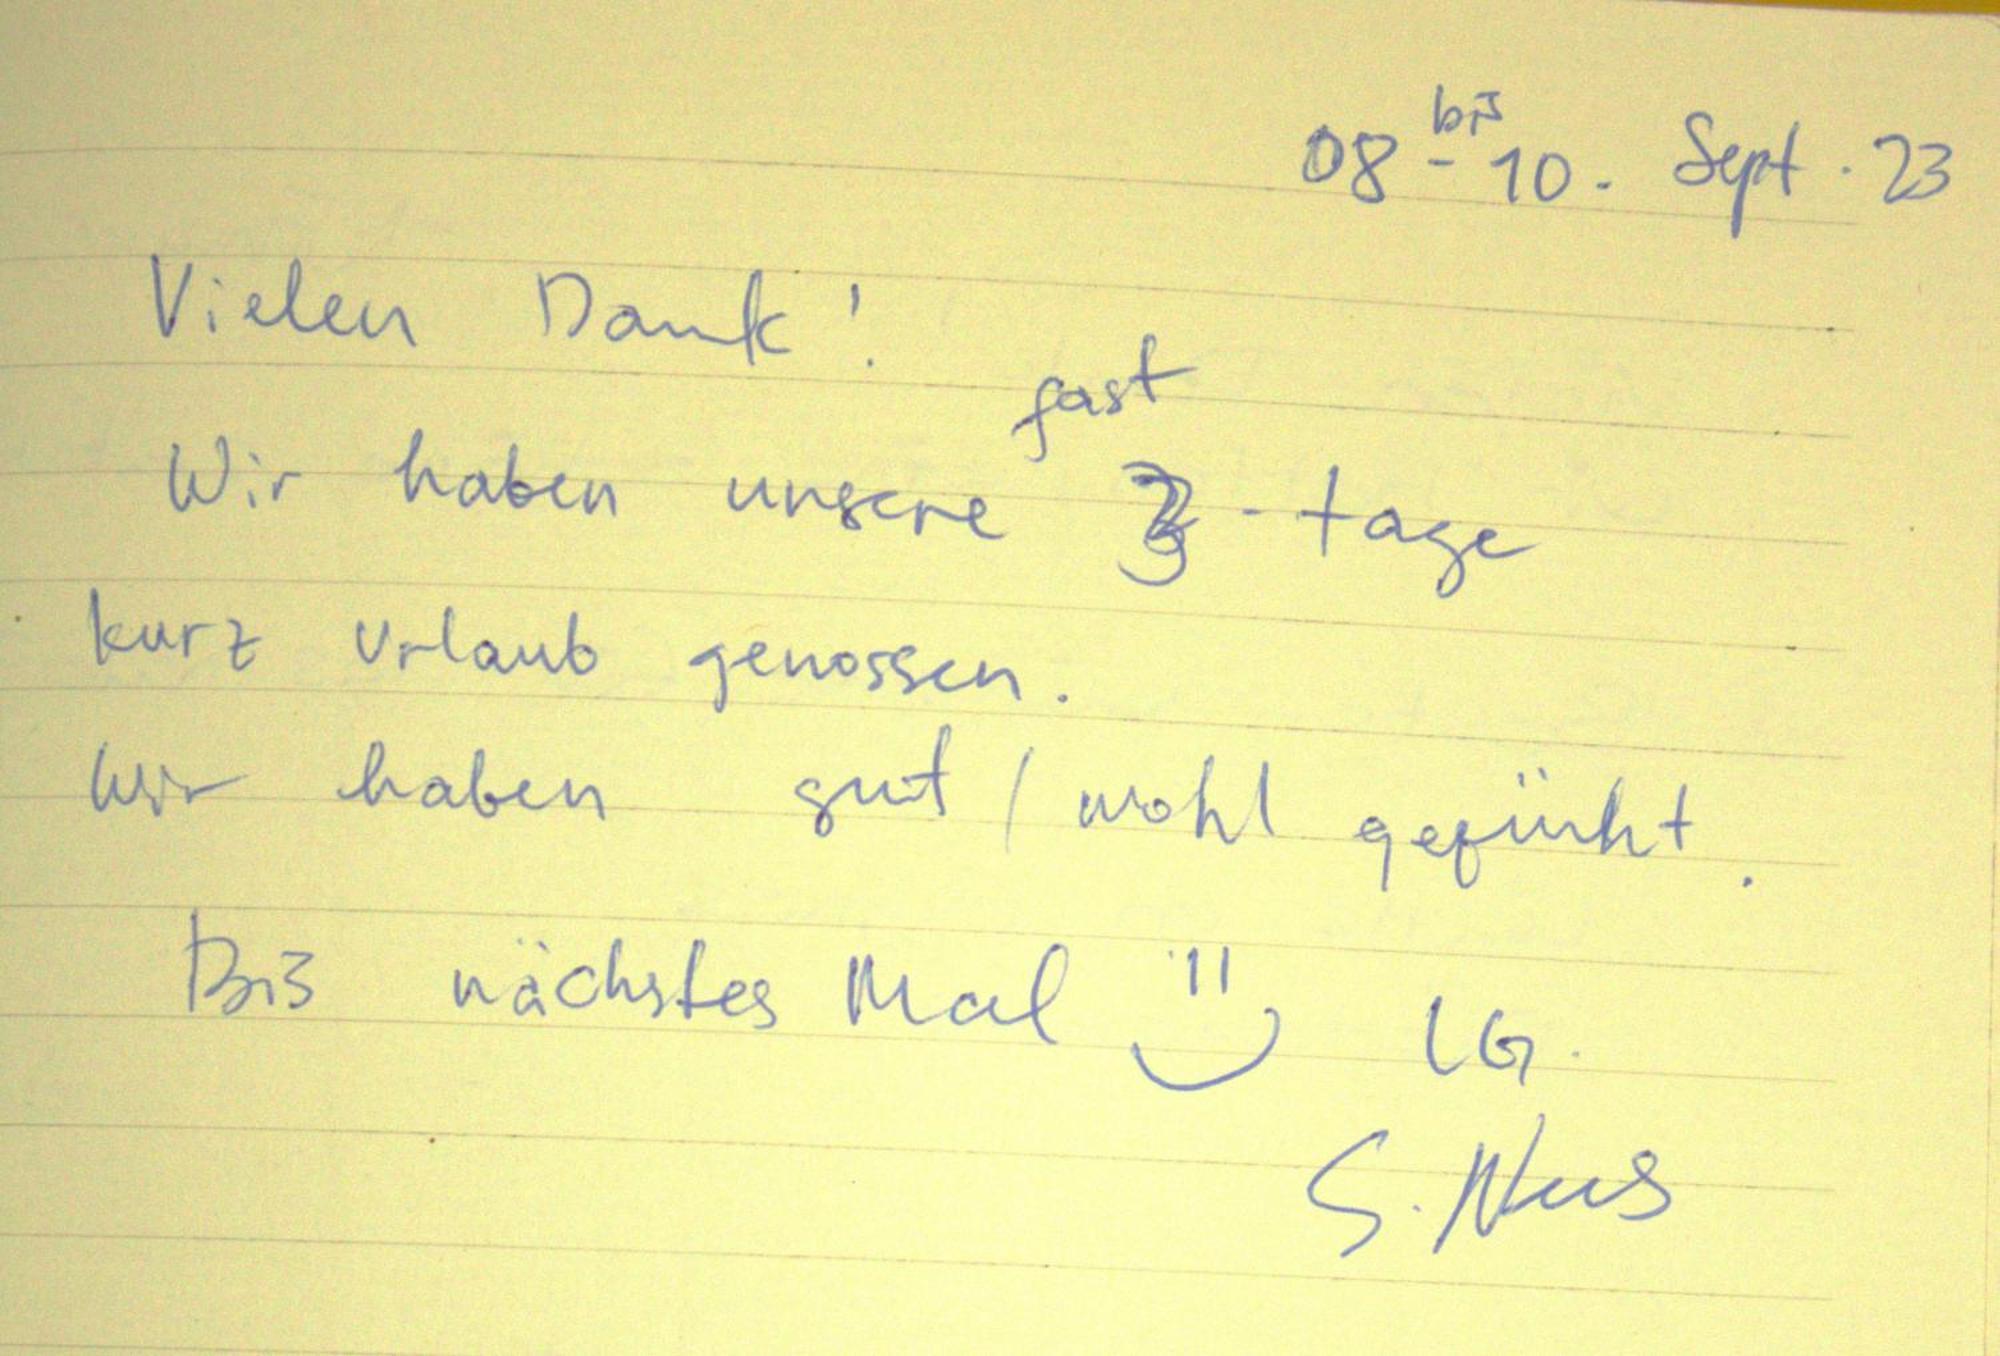 bis
08 - 10. Sept. 23
Vielen Dank!
fast
Wir haben unsere 3-tage
kurz Urlaub genossen.
Wir haben gut / wohl gefühlt.
Bis nächstes Mal LG.
S.